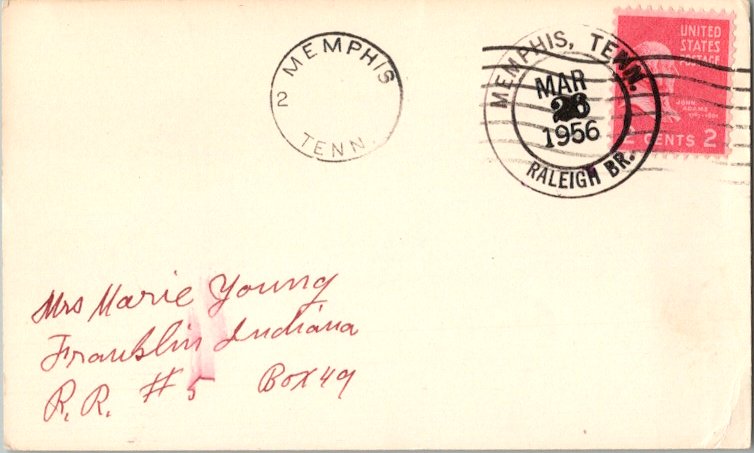 MEMPHIS
2
TENN.
MEMPHIS, TENN.
MAR
26
1956
RALEIGH BR.
UNITED
STATES
POSTAGE
JOHN
ADAMS
2 CENTS 2
Mrs Marie Young
Franklin Indiana
R.R. #5 Box 49